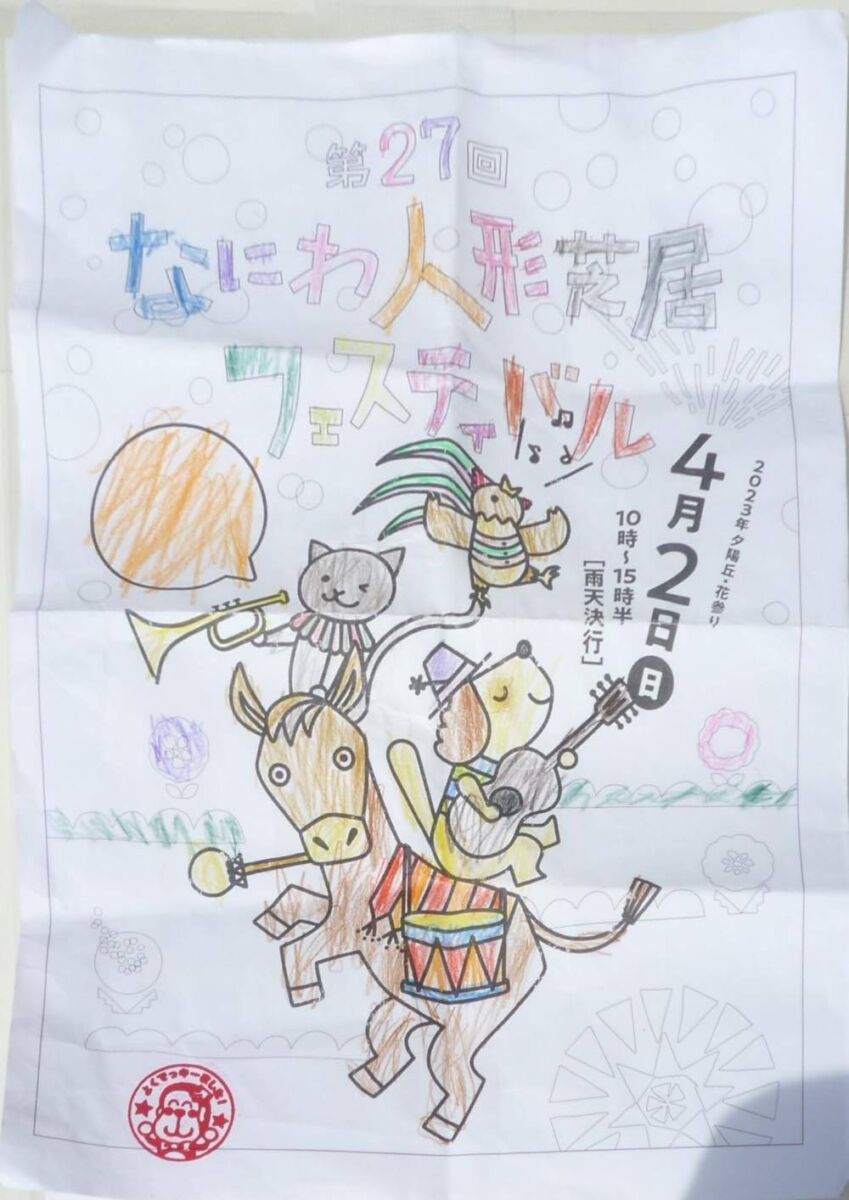 第27回
なにわ人形芝居
フェスティバル
2023年夕陽丘・花参り
4月2日日
10時~15時半
[雨天決行]